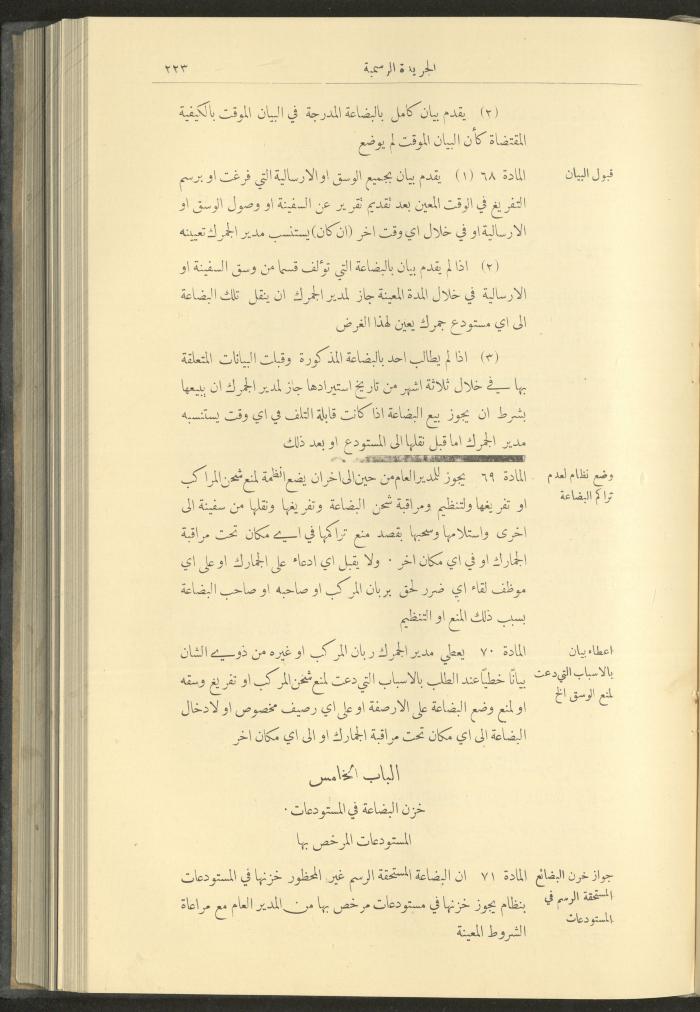 الجريدة الرسمية ٢٢٣
(٢) يقدم بيان كامل بالبضاعة المدرجة في البيان الموقت بالكيفية
المقتضاة كأن البيان الموقت لم يوضع
قبول البيان
المادة ٦٨ (١) يقدم بيان بجميع الوسق او الارسالية التي فرغت او برسم
التفريغ في الوقت المعين بعد تقديم تقرير عن السفينة او وصول الوسق او
الارسالية او في خلال اي وقت اخر (ان كان) يستنسب مدير الجمرك تعيينه
(٢) اذا لم يقدم بيان بالبضاعة التي تؤلف قسما من وسق السفينة او
الارسالية في خلال المدة المعينة جاز لمدير الجمرك ان ينقل تلك البضاعة
الى اي مستودع جمرك يعين لهذا الغرض
(٣) اذا لم يطالب احد بالبضاعة المذكورة وقبات البيانات المتعلقة
بها في خلال ثلاثة اشهر من تاريخ استيرادها جاز لمدير الجمرك ان يبيعها
بشرط ان يجوز بيع البضاعة اذا كانت قابلة التلف في اي وقت يستنسبه
مدير الجمرك اما قبل نقلها الى المستودع او بعد ذلك
وضع نظام لعدم
تراكم البضاعة
المادة ٦٩ يجوز للمدير العام من حين الى اخر ان يضع انظمة لمنع شحن المراكب
او تفريغها ولتنظيم ومراقبة شحن البضاعة وتفريغها ونقلها من سفينة الى
اخرى واستلامها وسحبها بقصد منع تراكمها في اي مكان تحت مراقبة
الجمارك او في اي مكان اخر ٠ ولا يقبل اي ادعاء على الجمارك او على اي
موظف لقاء اي ضرر لحق بربان المركب او صاحبه او صاحب البضاعة
بسبب ذلك المنع او التنظيم
اعطاء بيان
بالاسباب التي دعت
لمنع الوسق الخ
المادة ٧٠ يعطي مدير الجمرك ربان المركب او غيره من ذوي الشان
بيانًا خطيًا عند الطلب بالاسباب التي دعت لمنع شحن المركب او تفريغ وسقه
او لمنع وضع البضاعة على الارصفة او على اي رصيف مخصوص او لادخال
البضاعة الى اي مكان تحت مراقبة الجمارك او الى اي مكان اخر
الباب الخامس
خزن البضاعة في المستودعات ٠
المستودعات المرخص بها
جواز خزن البضائع
المستحقة الرسم في
المستودعات
المادة ٧١ ان البضاعة المستحقة الرسم غير المحظور خزنها في المستودعات
بنظام يجوز خزنها في مستودعات مرخص بها من المدير العام مع مراعاة
الشروط المعينة